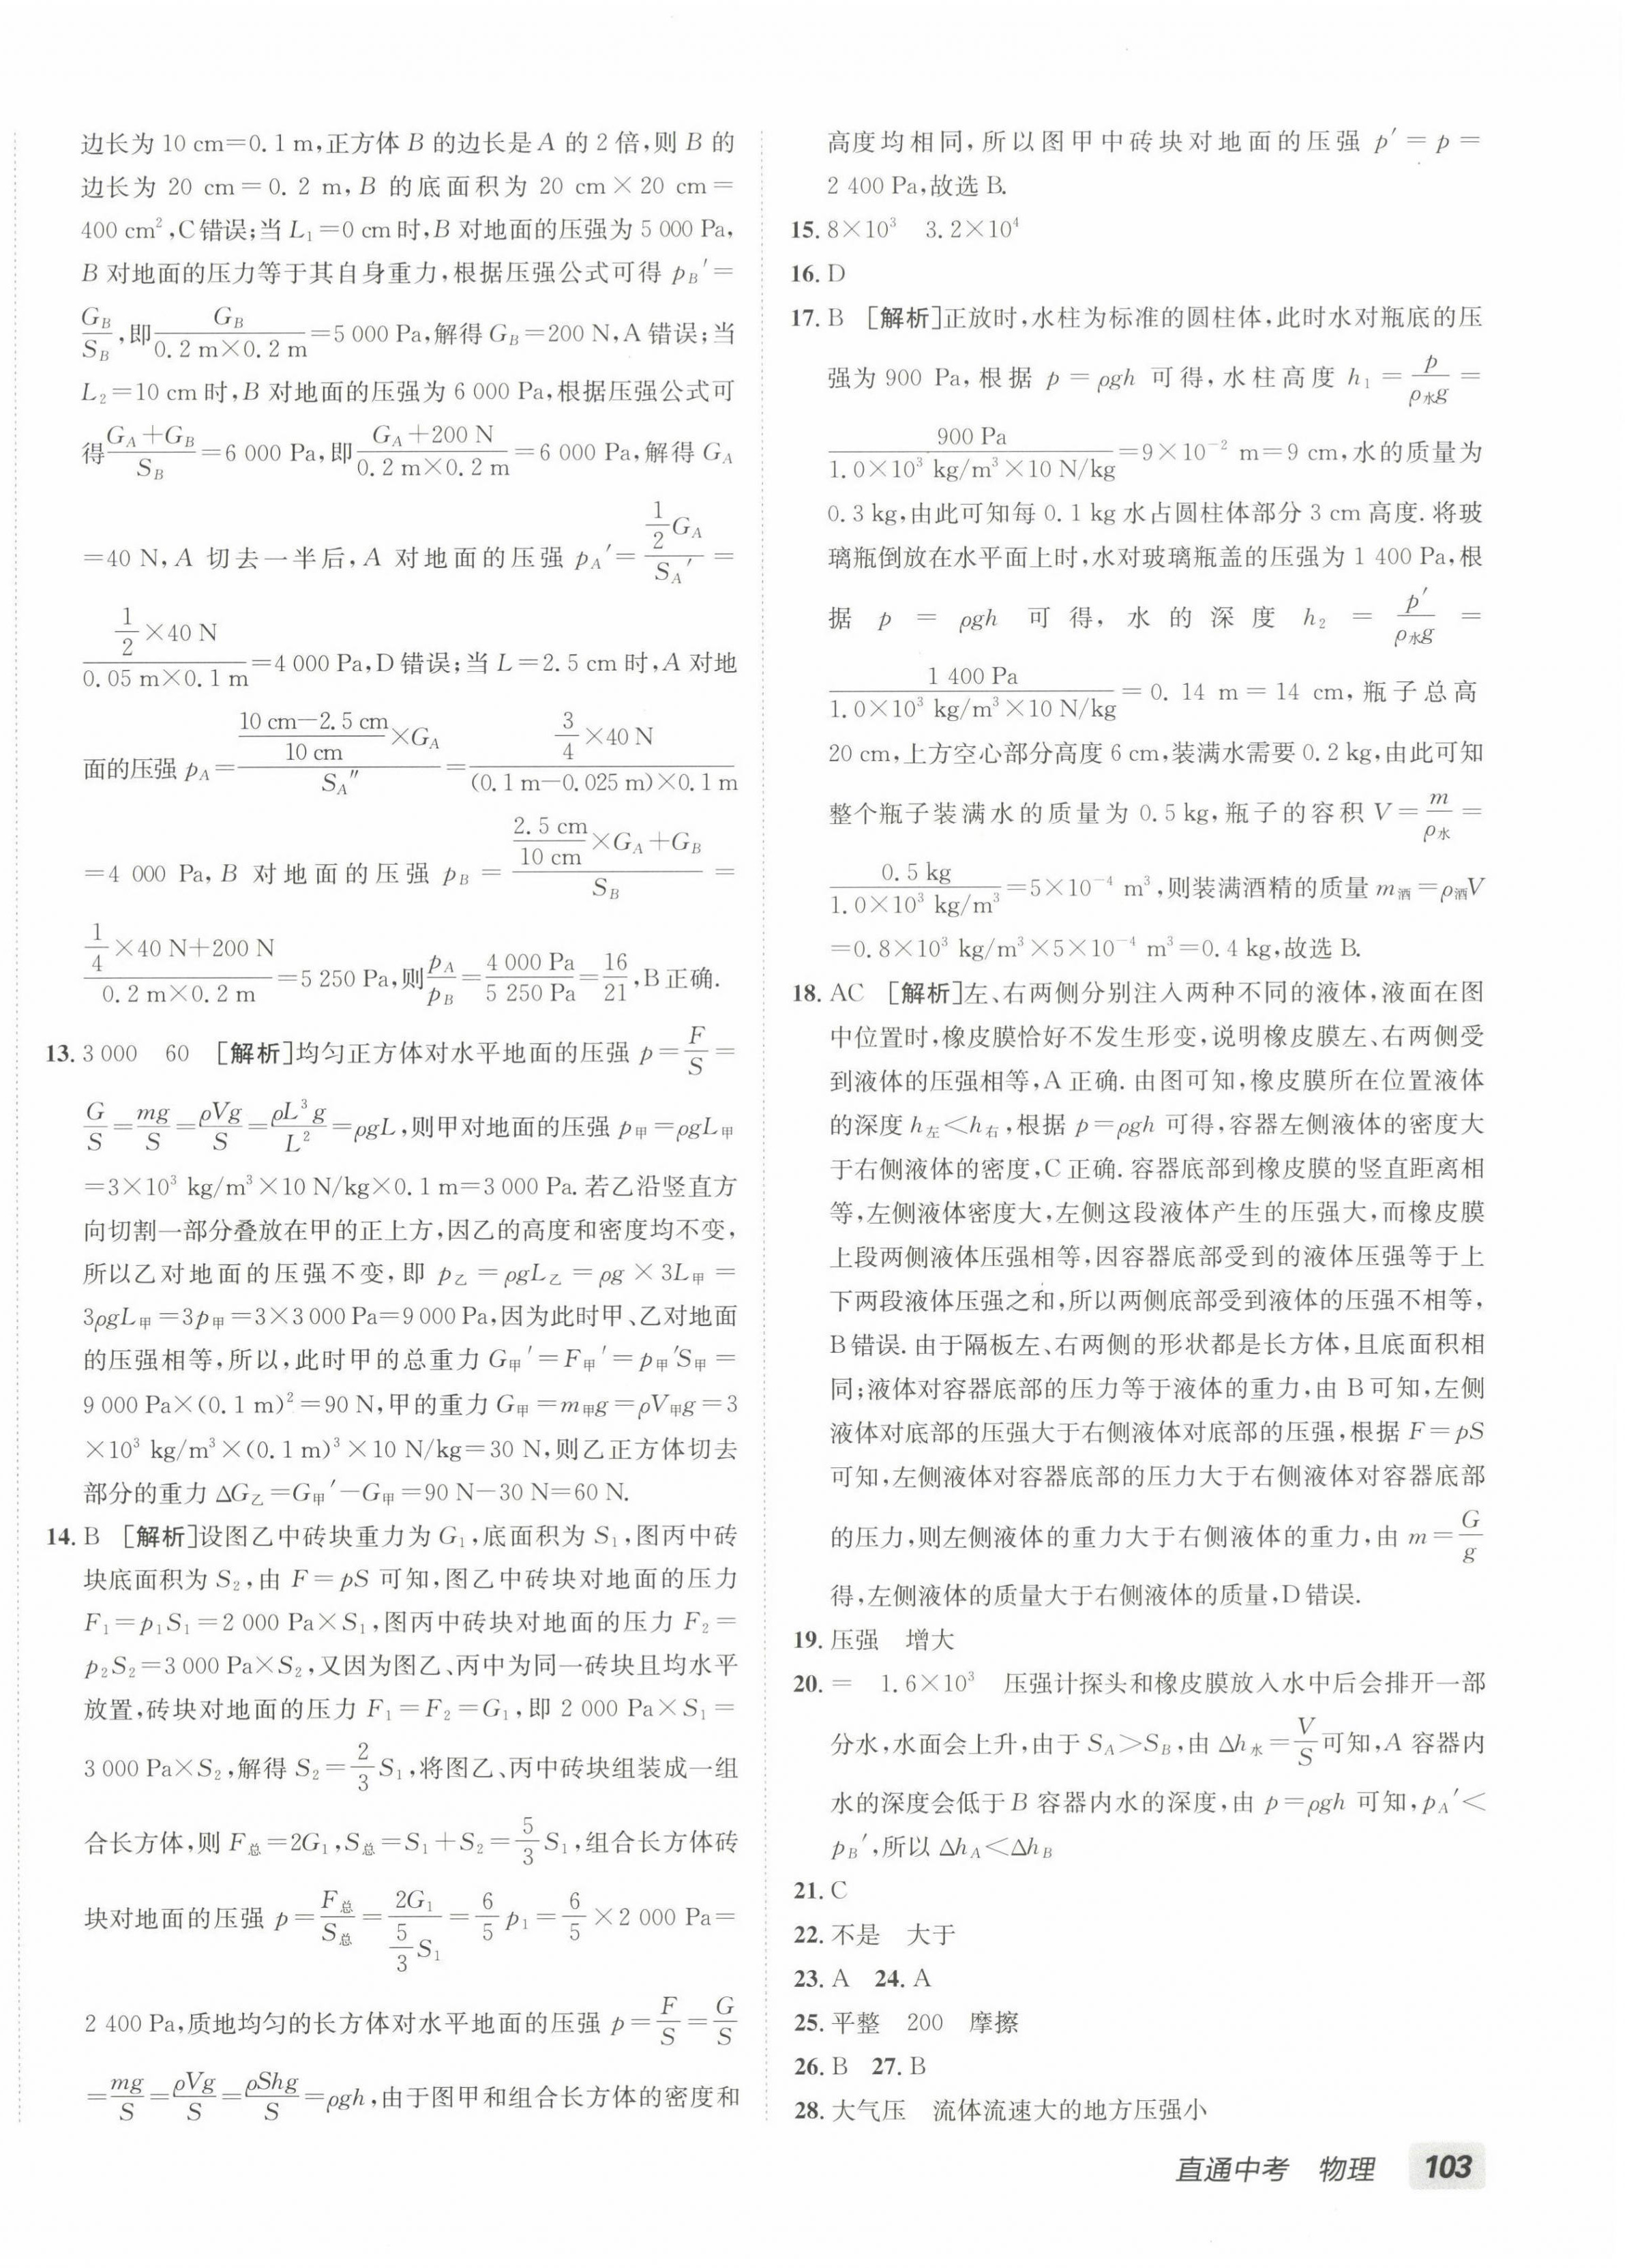 边长为 10 cm=0.1 m,正方体 B 的边长是 A 的 2 倍,则 B 的
边长为 20 cm=0.2 m,B 的底面积为 20 cm×20 cm=
400 cm²,C错误;当 L₁=0 cm时,B对地面的压强为 5 000 Pa,
B 对地面的压力等于其自身重力,根据压强公式可得 p_B′=
G_B/S_B,即G_B/(0.2 m×0.2 m)=5 000 Pa,解得 G_B=200 N,A 错误;当
L₂=10 cm 时,B 对地面的压强为 6 000 Pa,根据压强公式可
得(G_A+G_B)/S_B=6 000 Pa,即(G_A+200 N)/(0.2 m×0.2 m)=6 000 Pa,解得 G_A
=40 N,A 切去一半后,A 对地面的压强 p_A′=(1/2 G_A)/S_A′=
(1/2×40 N)/(0.05 m×0.1 m)=4 000 Pa,D 错误;当 L=2.5 cm 时,A 对地
面的压强 p_A=((10 cm-2.5 cm)/10 cm×G_A)/S_A″=(3/4×40 N)/((0.1 m-0.025 m)×0.1 m)
=4 000 Pa,B 对地面的压强 p_B=(2.5 cm/10 cm×G_A+G_B)/S_B=
(1/4×40 N+200 N)/(0.2 m×0.2 m)=5 250 Pa,则p_A/p_B=4 000 Pa/5 250 Pa=16/21,B 正确.
13. 3 000 60 [解析]均匀正方体对水平地面的压强 p=F/S=
G/S=mg/S=ρVg/S=ρL³g/L²=ρgL,则甲对地面的压强 p甲=ρgL甲
=3×10³ kg/m³×10 N/kg×0.1 m=3 000 Pa. 若乙沿竖直方
向切割一部分叠放在甲的正上方,因乙的高度和密度均不变,
所以乙对地面的压强不变,即 p乙=ρgL乙=ρg×3L甲=
3ρgL甲=3p甲=3×3 000 Pa=9 000 Pa,因为此时甲、乙对地面
的压强相等,所以,此时甲的总重力 G甲′=F甲′=p甲′S甲=
9 000 Pa×(0.1 m)²=90 N,甲的重力 G甲=m甲g=ρV甲g=3
×10³ kg/m³×(0.1 m)³×10 N/kg=30 N,则乙正方体切去
部分的重力 ΔG乙=G甲′-G甲=90 N-30 N=60 N.
14. B [解析]设图乙中砖块重力为 G₁,底面积为 S₁,图丙中砖
块底面积为 S₂,由 F=pS 可知,图乙中砖块对地面的压力
F₁=p₁S₁=2 000 Pa×S₁,图丙中砖块对地面的压力 F₂=
p₂S₂=3 000 Pa×S₂,又因为图乙、丙中为同一砖块且均水平
放置,砖块对地面的压力 F₁=F₂=G₁,即 2 000 Pa×S₁=
3 000 Pa×S₂,解得 S₂=2/3 S₁,将图乙、丙中砖块组装成一组
合长方体,则 F总=2G₁,S总=S₁+S₂=5/3 S₁,组合长方体砖
块对地面的压强 p=F总/S总=2G₁/(5/3 S₁)=6/5 p₁=6/5×2 000 Pa=
2 400 Pa,质地均匀的长方体对水平地面的压强 p=F/S=G/S
=mg/S=ρVg/S=ρShg/S=ρgh,由于图甲和组合长方体的密度和
高度均相同,所以图甲中砖块对地面的压强 p′=p=
2 400 Pa,故选 B.
15. 8×10³ 3.2×10⁴
16. D
17. B [解析]正放时,水柱为标准的圆柱体,此时水对瓶底的压
强为 900 Pa,根据 p=ρgh 可得,水柱高度 h₁=p/(ρ水g)=
900 Pa/(1.0×10³ kg/m³×10 N/kg)=9×10⁻² m=9 cm,水的质量为
0.3 kg,由此可知每 0.1 kg 水占圆柱体部分 3 cm 高度. 将玻
璃瓶倒放在水平面上时,水对玻璃瓶盖的压强为 1 400 Pa,根
据 p=ρgh 可得,水的深度 h₂=p′/(ρ水g)=
1 400 Pa/(1.0×10³ kg/m³×10 N/kg)=0.14 m=14 cm,瓶子总高
20 cm,上方空心部分高度 6 cm,装满水需要 0.2 kg,由此可知
整个瓶子装满水的质量为 0.5 kg,瓶子的容积 V=m/ρ水=
0.5 kg/(1.0×10³ kg/m³)=5×10⁻⁴ m³,则装满酒精的质量 m酒=ρ酒V
=0.8×10³ kg/m³×5×10⁻⁴ m³=0.4 kg,故选 B.
18. AC [解析]左、右两侧分别注入两种不同的液体,液面在图
中位置时,橡皮膜恰好不发生形变,说明橡皮膜左、右两侧受
到液体的压强相等,A 正确. 由图可知,橡皮膜所在位置液体
的深度 h左<h右,根据 p=ρgh 可得,容器左侧液体的密度大
于右侧液体的密度,C 正确. 容器底部到橡皮膜的竖直距离相
等,左侧液体密度大,左侧这段液体产生的压强大,而橡皮膜
上段两侧液体压强相等,因容器底部受到的液体压强等于上
下两段液体压强之和,所以两侧底部受到液体的压强不相等,
B 错误. 由于隔板左、右两侧的形状都是长方体,且底面积相
同;液体对容器底部的压力等于液体的重力,由 B 可知,左侧
液体对底部的压强大于右侧液体对底部的压强,根据 F=pS
可知,左侧液体对容器底部的压力大于右侧液体对容器底部
的压力,则左侧液体的重力大于右侧液体的重力,由 m=G/g
得,左侧液体的质量大于右侧液体的质量,D 错误.
19. 压强 增大
20. = 1.6×10³ 压强计探头和橡皮膜放入水中后会排开一部
分水,水面会上升,由于 S_A>S_B,由 Δh水=V/S可知,A 容器内
水的深度会低于 B 容器内水的深度,由 p=ρgh 可知,p_A′<
p_B′,所以 Δh_A<Δh_B
21. C
22. 不是 大于
23. A 24. A
25. 平整 200 摩擦
26. B 27. B
28. 大气压 流体流速大的地方压强小
直通中考 物理 103